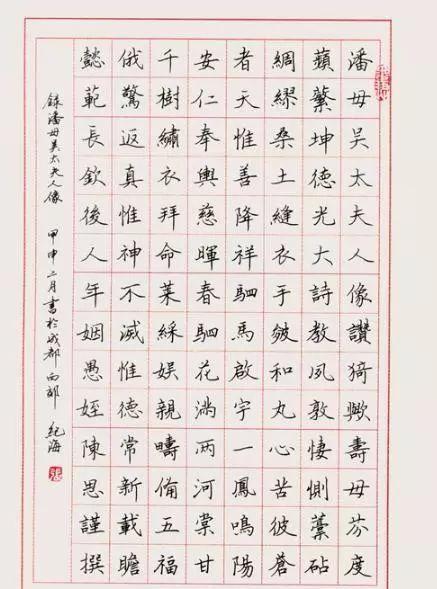 潘母吳太夫人像讚猗歟壽母芬度
蘋蘩坤德光大詩教夙敦悽惻藁砧
綢繆桑土縫衣手皴和丸心苦彼蒼
者天惟善降祥駟馬啟宇一鳳鳴陽
安仁奉輿慈暉春駟花滿兩河棠甘
千樹繡衣拜命萊綵娛親疇俻五福
俄驚返真惟神不滅惟德常新載瞻
懿範長欽後人年姻愚姪陳思謹撰
錄潘母吳太夫人像 甲申二月書於成都西郊 紀海